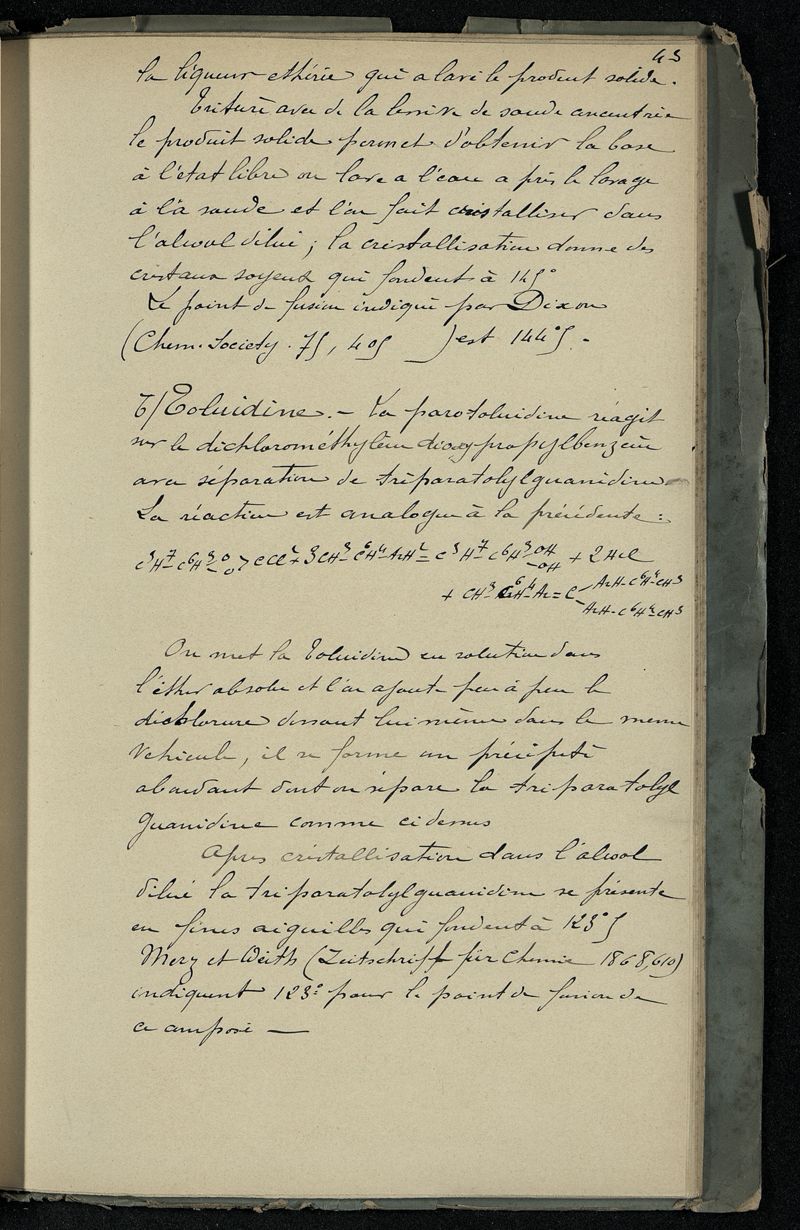 43
la liqueur etherée qui a lavé le produit solide.
Trituré avec de la lessive de soude concentrée
le produit solide permet d'obtenir la base
à l'état libre on lave a l'eau après le lavage
à la soude et l'on fait cristalliser dans
l'alcool dilué; la cristallisation donne des
cristaux soyeux qui fondent à 145°
Le point de fusion indiqué par Dixon
(Chem. Society. 75, 405 ) est 144°5. -
b/ Toluidine. - La paratoluidine réagit
sur le dichlorométhylène dioxypropylbenzène
avec séparation de triparatolylguanidine
La réaction est analogue à la précédente :
C³H⁷-C⁶H³-O-O>CCl²+3CH³-C⁶H⁴-AzH²=C³H⁷-C⁶H³-OH-OH + 2HCl
+ CH³-C⁶H⁴-Az=C-AzH-C⁶H⁴-CH³-AzH-C⁶H⁴-CH³
On met la Toluidine en solution dans
l'éther absolu et l'on ajoute peu à peu le
dichlorure dissout lui même dans le meme
Vehicule, il se forme un précipité
abondant dont on sépare la triparatolyl
guanidine comme ci dessus
Apres cristallisation dans l'alcool
dilué la triparatolylguanidine se présente
en fines aiguilles qui fondent à 123°5
Merz et Weith (Zeitschrift für Chemie 1868, 610)
indiquent 123° pour le point de fusion de
ce composé —